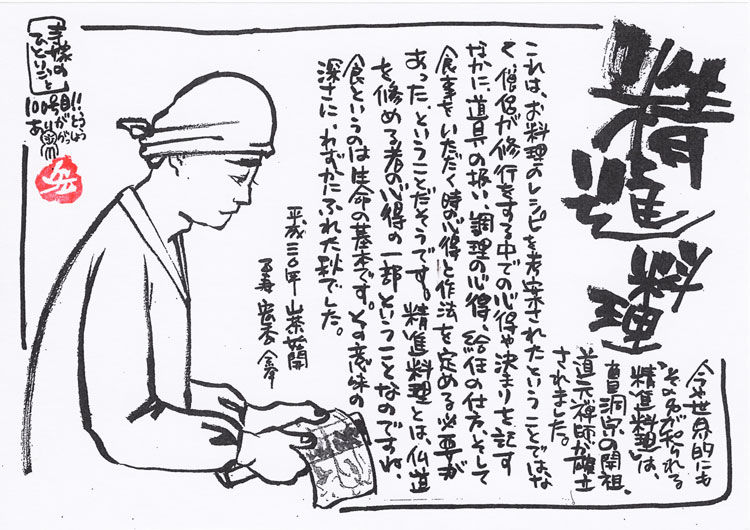 精進
料理
今や世界的にも
その名が知られる
"精進料理"は、
曹洞宗の開祖、
道元禅師が確立
されました。
これは、お料理のレシピを考案されたということではな
く、僧侶が修行をする中での心得や決まりを記す
なかに、道具の扱い、調理の心得、給仕の仕方、そして
食事をいただく時の心得と作法を定める必要が
あった、ということだそうです。精進料理とは、仏道
を修める者の心得の一部ということなのですね。
食というのは生命の基本です。その意味の
深さに、わずかにふれた秋でした。
平成三〇年 山茶花開
寺嫁の
ひとりごと
100号目!!